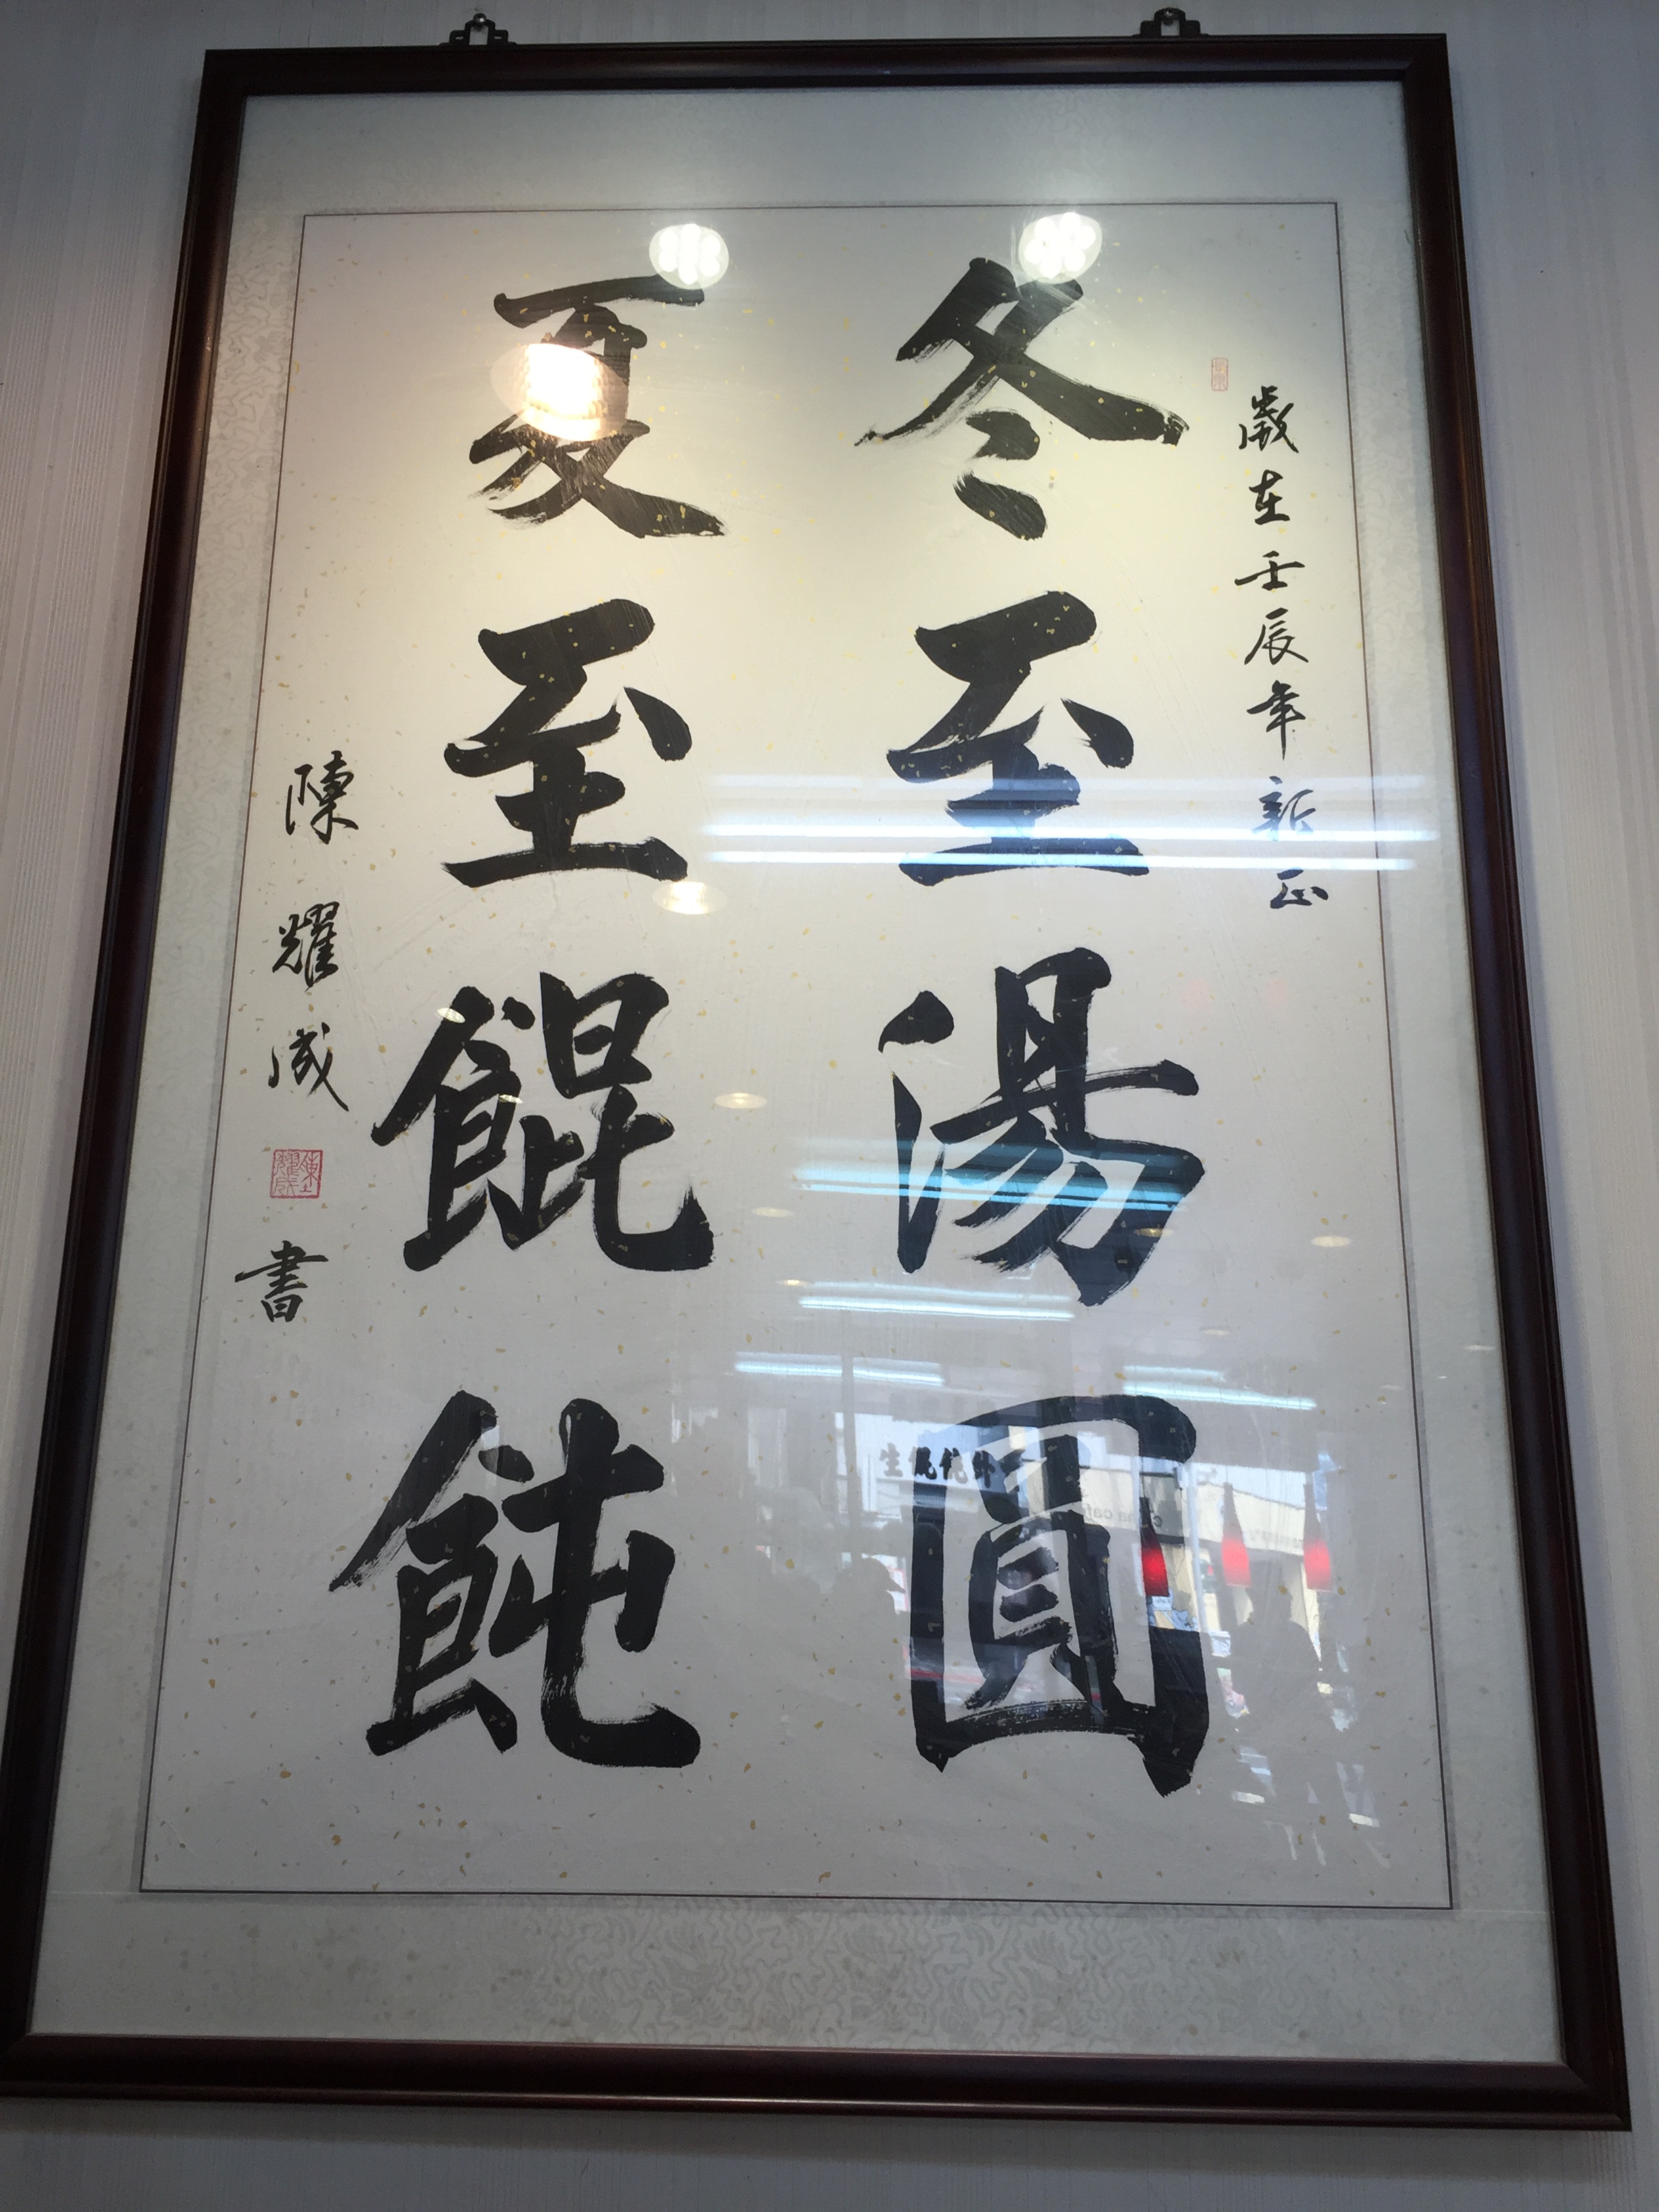 歲在壬辰年新正
冬至湯圓
夏至餛飩
陳耀成
書